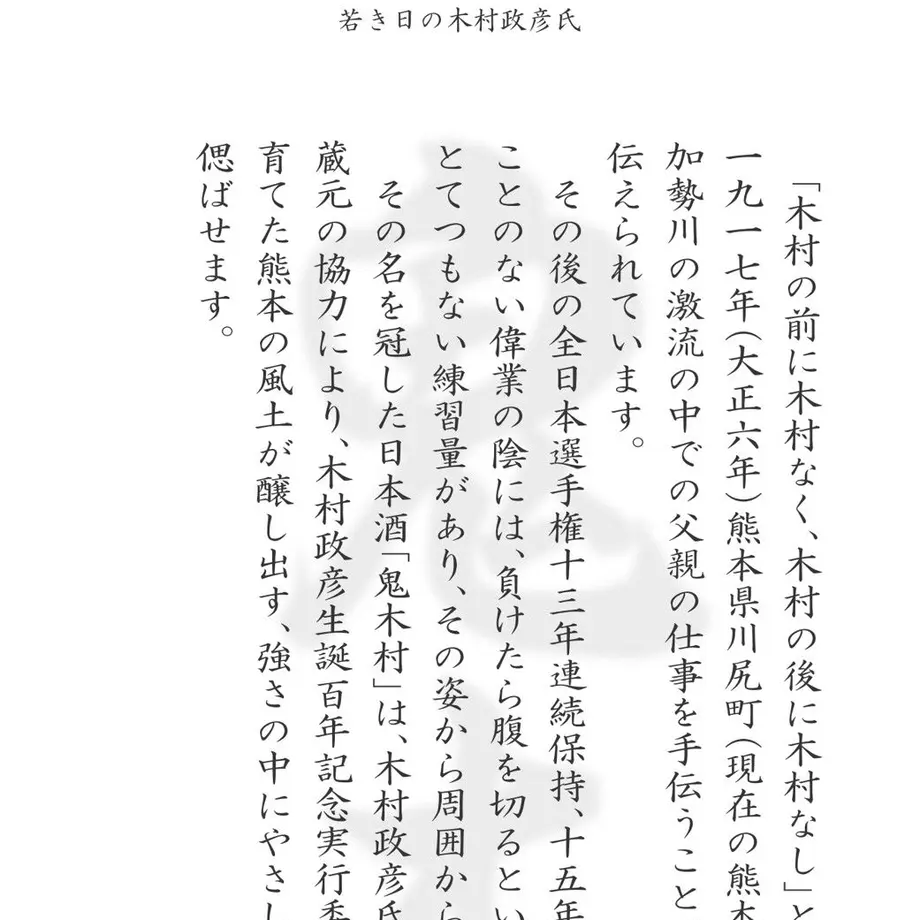 若き日の木村政彦氏
「木村の前に木村なく、木村の後に木村なし」と
一九一七年（大正六年）熊本県川尻町（現在の熊本
加勢川の激流の中での父親の仕事を手伝うこと
伝えられています。
その後の全日本選手権十三年連続保持、十五年
ことのない偉業の陰には、負けたら腹を切るとい
とてつもない練習量があり、その姿から周囲から
その名を冠した日本酒「鬼木村」は、木村政彦氏
蔵元の協力により、木村政彦生誕百年記念実行委
育てた熊本の風土が醸し出す、強さの中にやさし
偲ばせます。
鬼